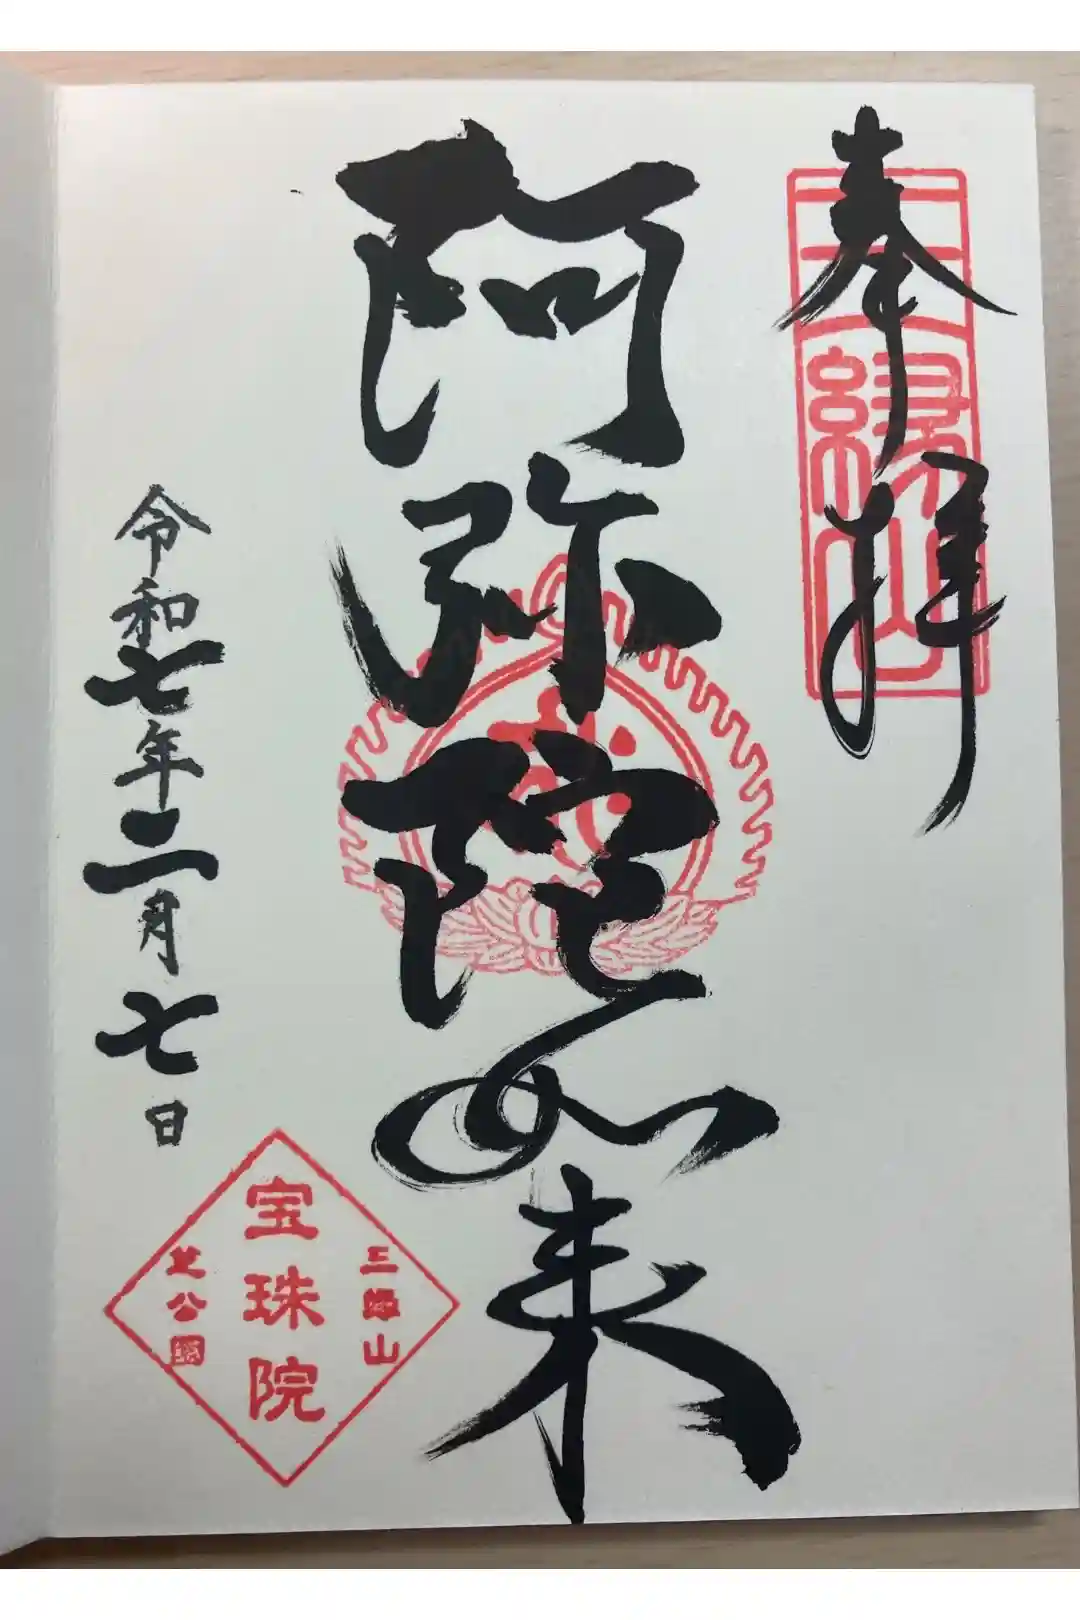 奉拝
三縁山
阿弥陀如来
令和七年二月七日
三縁山
宝珠院
芝公園